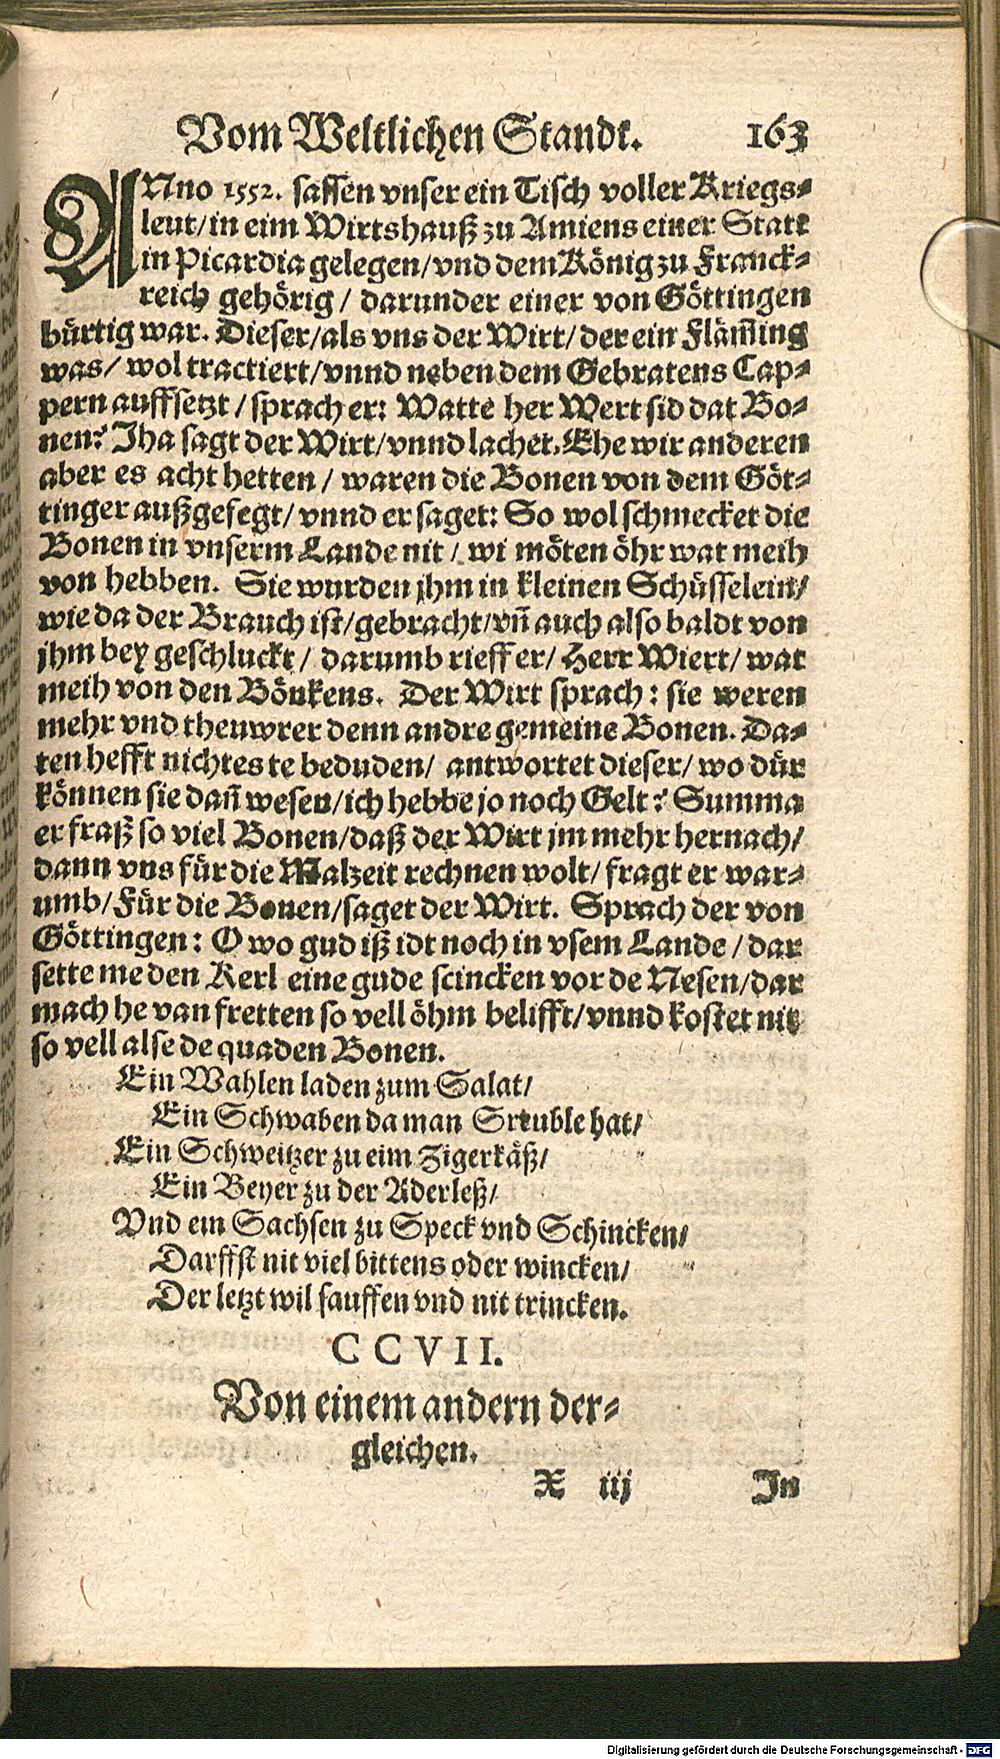 Vom Weltlichen Standt. 163
ANno 1552. sassen vnser ein Tisch voller Kriegs⸗
leut/ in eim Wirtshauß zu Amiens einer Statt
in Picardia gelegen/ vnd dem König zu Franck⸗
reich gehörig / darunder einer von Göttingen
bürtig war. Dieser/ als vns der Wirt/ der ein Flām̃ling
was/ wol tractiert/ vnnd neben dem Gebratens Cap⸗
pern auffsetzt / sprach er: Watte her Wert sid dat Bo⸗
nen? Jha sagt der Wirt/ vnnd lachet. Ehe wir anderen
aber es acht hetten / waren die Bonen von dem Göt⸗
tinger außgefegt/ vnnd er saget: So wol schmecket die
Bonen in vnserm Lande nit / wi möten öhr wat meih
von hebben. Sie wurden jhm in kleinen Schüsselein/
wie da der Brauch ist/ gebracht/ vn̄ auch also baldt von
jhm bey geschluckt / darumb rieff er/ Herr Wiert/ wat
meih von den Bönkens. Der Wirt sprach: sie weren
mehr vnd theuwrer denn andre gemeine Bonen. Da⸗
ten hefft nichtes te beduden/ antwortet dieser/ wo dür
können sie dan̄ wesen/ ich hebbe jo noch Gelt? Summa
er fraß so viel Bonen/ daß der Wirt jm mehr hernach/
dann vns für die Malzeit rechnen wolt/ fragt er war⸗
umb/ Für die Bonen/ saget der Wirt. Sprach der von
Göttingen: O wo gud iß idt noch in vsem Lande / dar
sette me den Kerl eine gude scincken vor de Nesen/ dar
mach he van fretten so vell öhm belifft/ vnnd kostet nit
so vell alse de quaden Bonen.
Ein Wahlen laden zum Salat/
Ein Schwaben da man Streuble hat/
Ein Schweitzer zu eim Zigerkäß/
Ein Beyer zu der Aderleß/
Vnd ein Sachsen zu Speck vnd Schincken/
Darffst nit viel bittens oder wincken/
Der letzt wil sauffen vnd nit trincken.
CCVII.
Von einem andern der⸗
gleichen.
X iij In
Digitalisierung gefördert durch die Deutsche Forschungsgemeinschaft - DFG